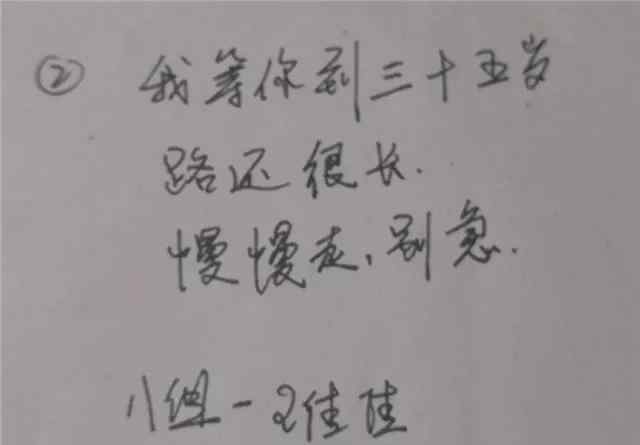 ② 我等你到三十五岁
路还很长.
慢慢走,别急.
八组-王佳佳